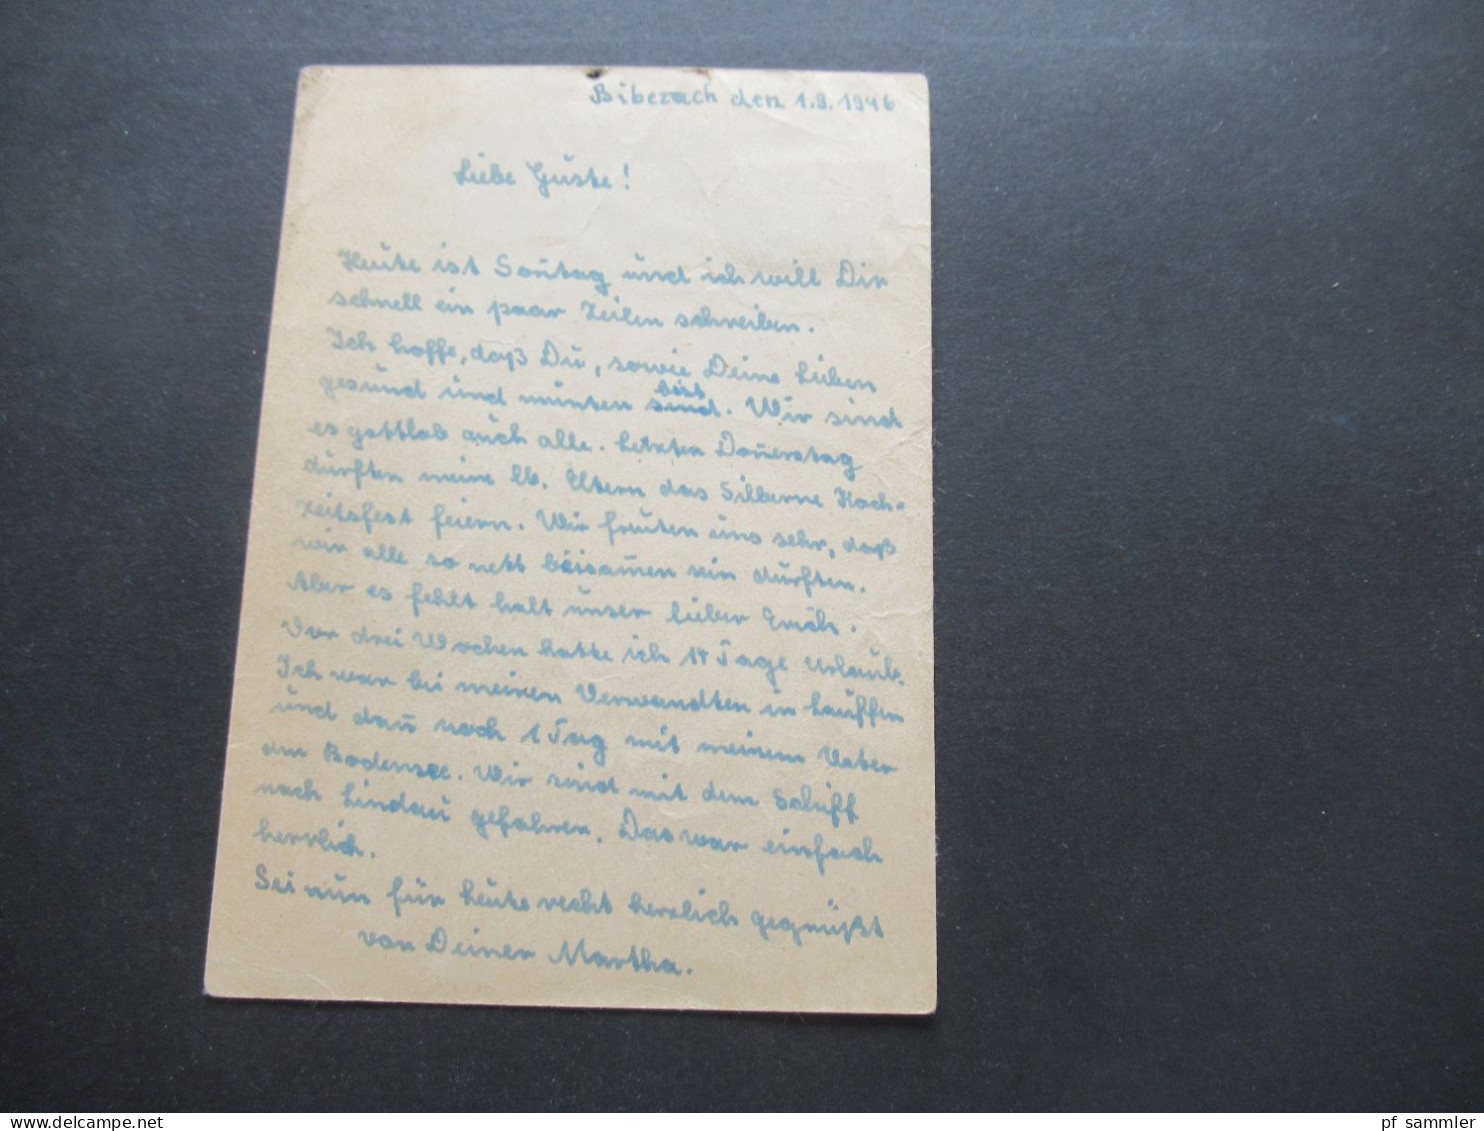 Biberach den 1.9.1946
Liebe Guste!
Heute ist Soñtag und ich will Dir
schnell ein paar Zeilen schreiben.
Ich hoffe, daß Du, sowie Deine Lieben
gesund und munter sind bist. Wir sind
es gottlob auch alle. Letzten Doñerstag
durften meine lb. Eltern das Silberne Hoch-
zeitsfest feiern. Wir freuten uns sehr, daß
wir alle so nett beisam̄en sein durften.
Aber es fehlt halt unser lieber Erich.
Vor drei Wochen hatte ich 14 Tage Urlaub.
Ich war bei meinen Verwandten in Lauffen
und dañ noch 1 Tag mit meinem Vater
am Bodensee. Wir sind mit dem Schiff
nach Lindau gefahren. Das war einfach
herrlich.
Sei nun für heute recht herzlich gegrüßt
von Deiner Martha.
pf sammler